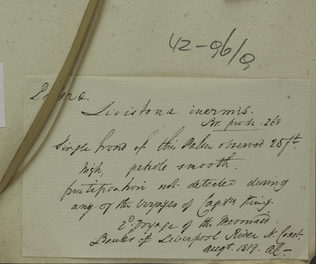 42-9/6/9
Livistona inermis.
Br. prodr. 268
Single frond of this Palm observed 28 ft.
high petiole smooth.
fructification not detected during
any of the voyages of Captn King.
2d voyage of the Mermaid.
Banks of Liverpool River N. Coast.
augt. 1819. AC